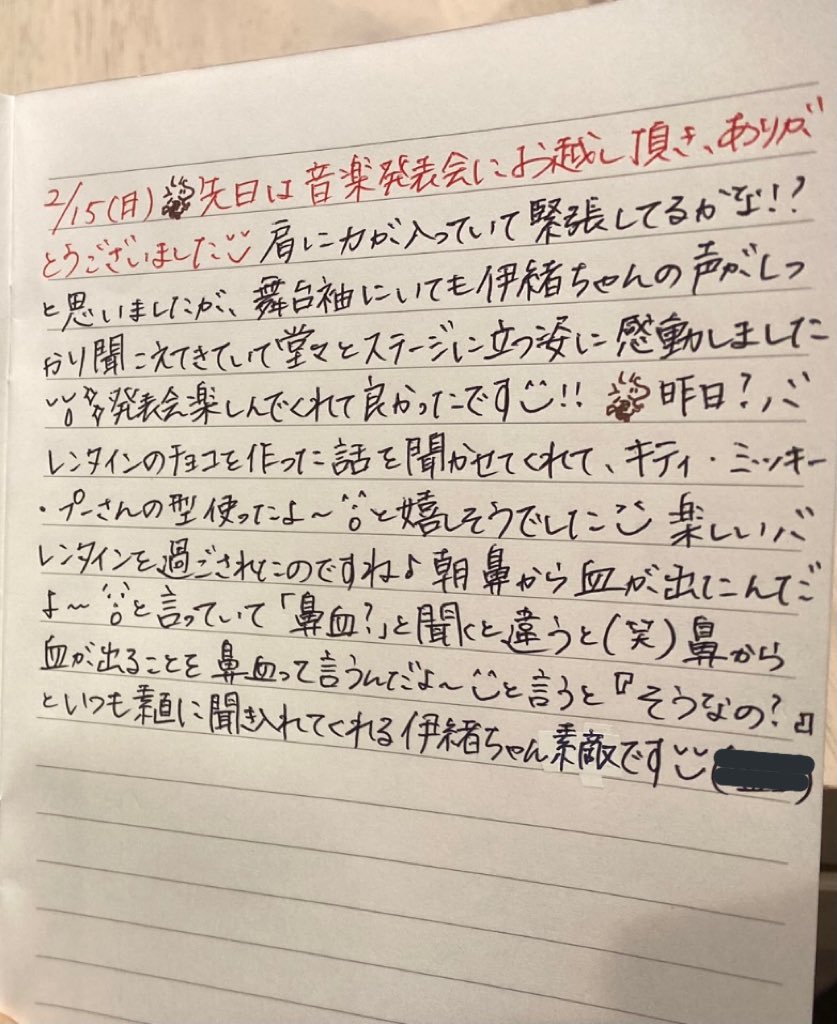 2/15(日) 先日は音楽発表会にお越し頂き、ありが
とうございました 肩に力が入っていて緊張してるがな!?
と思いましたが、舞台袖にいても伊緒ちゃんの声がしっ
かり聞こえてきていて堂々とステージに立つ姿に感動しました
発表会楽しんでくれて良かったです!! 昨日?バ
レンタインのチョコを作った話を聞かせてくれて、キティ・ミッキー
・プーさんの型使ったよ〜と嬉しそうでした 楽しいバ
レンタインを過ごされたのですね♪朝鼻から血が出てたんだ
よ〜と言っていて「鼻血?」と聞くと違うと(笑)鼻から
血が出ることを鼻血って言うんだよ〜と言うと『そうなの?』
といつも素直に聞き入れてくれる伊緒ちゃん素敵です